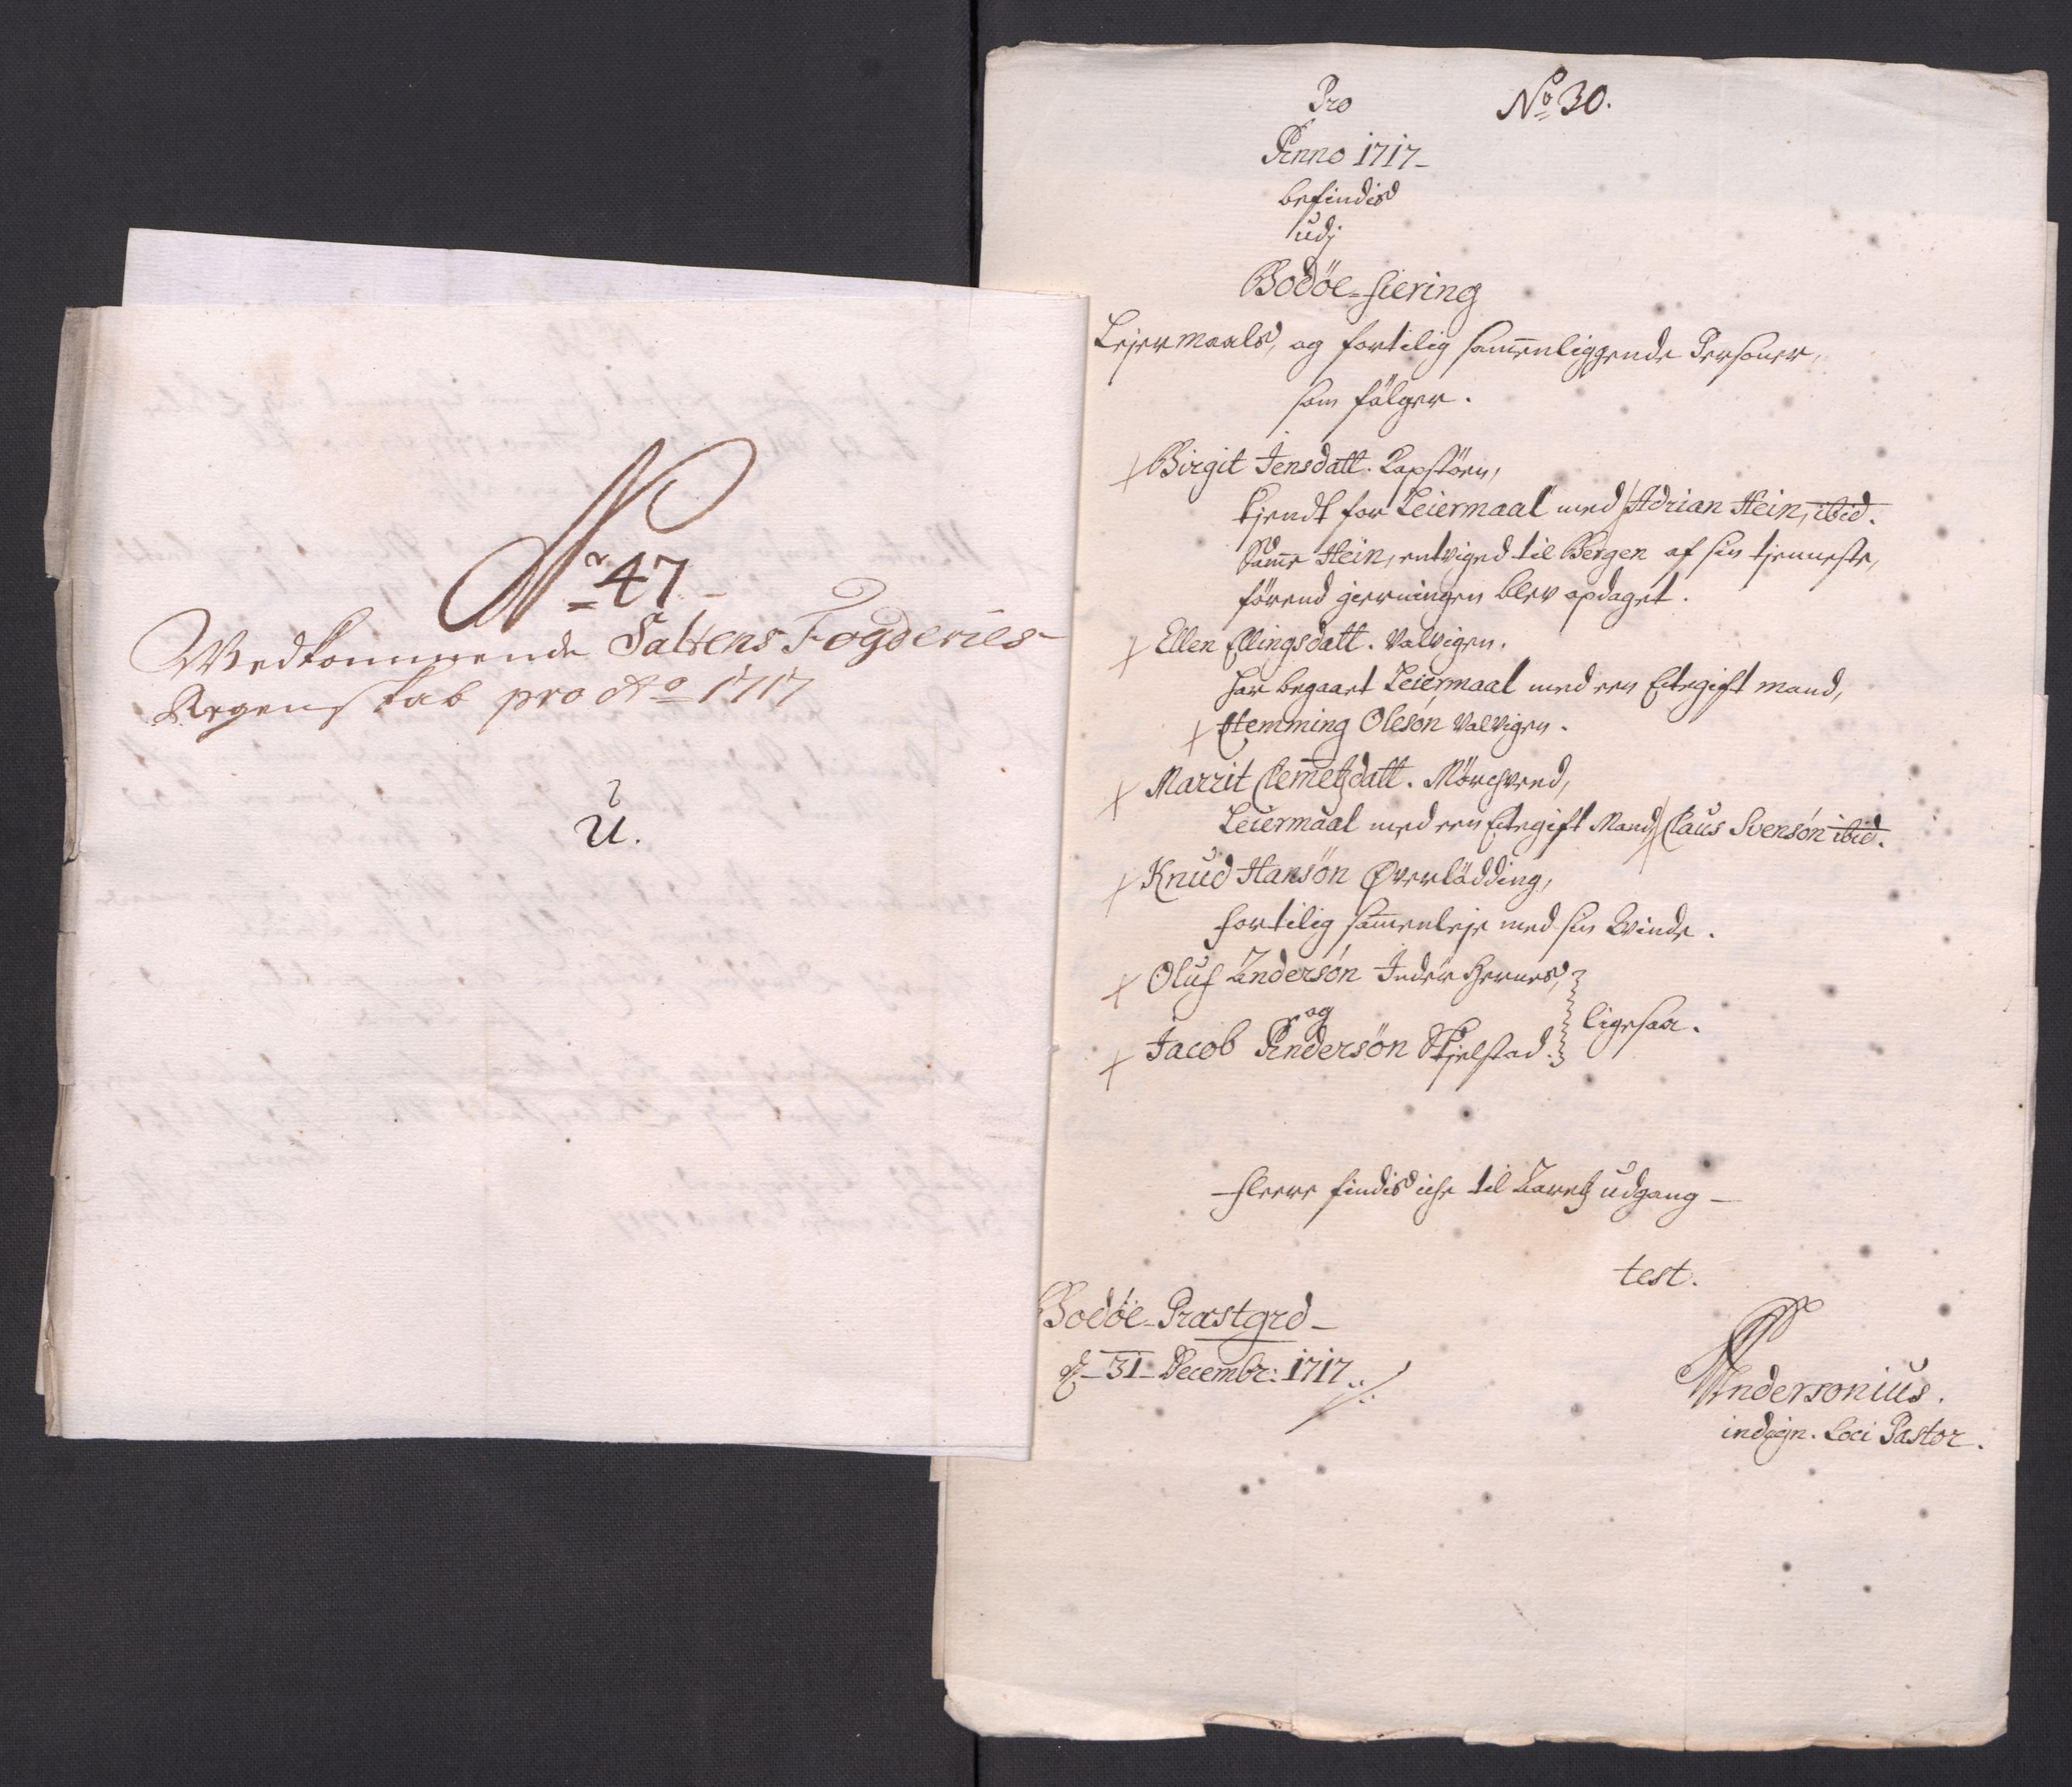 Nr 47
Vedkommende Saltens Fogderies
Regenskab pro Ao 1717
U.
Pro
No 30.
Anno 1717
befindis
udj
Bodöe-fiering
Lejermaals, og fortilig sammenliggende Personer,
som fölger.
Birgit Jensdatt. Lopstören,
kjendt for Leiermaal med Adrian Hein, ibid.
Samme Hein, entviged til Bergen af sin tjenneste,
förend gierningen blev opdaget.
Ellen Ellingsdatt. Valvigen.
har begaaet Leiermaal med een Ectegift mand,
Hemming Olesön Valvigen.
Marrit Clemmetzdatt. Mörchved,
Leiermaal med een Ectegift Mand Claus Svensön ibid.
Knud Hansön Øverlödding,
fortilig sammenleje med sin Qvinde.
Oluf Andersön Inder Hernes,
og
Jacob Andersön Skjelstad.
ligesaa.
fleere findis iche til Aaretz udgang
test.
Bodöe-Præstgrd
d. 31 Decembr: 1717
Andersonius.
indign. Loci Pastor.